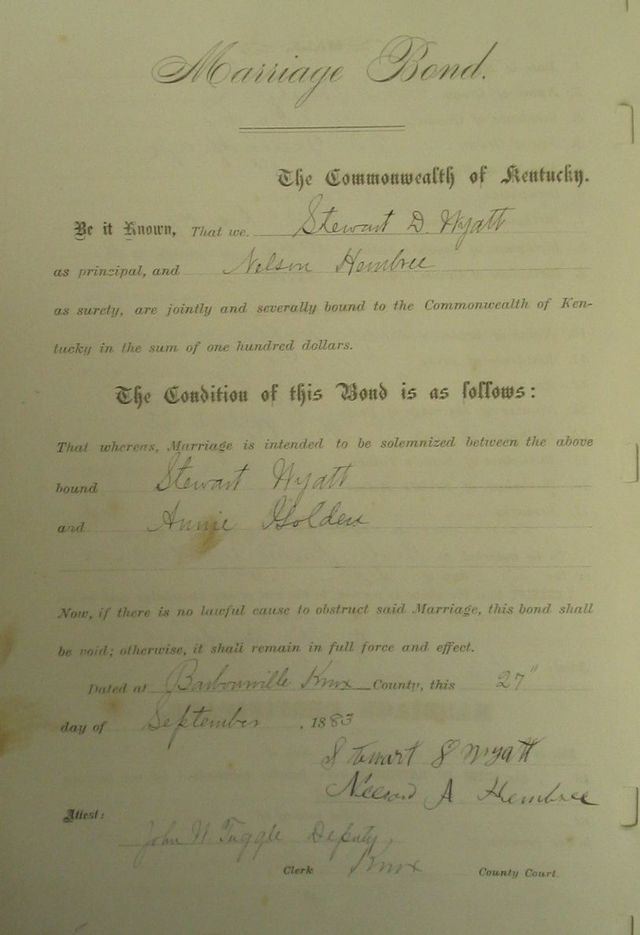 Marriage Bond.
The Commonwealth of Kentucky.
Be it Known, That we Stewart D. Wyatt
as principal, and Nelson Hembree
as surety, are jointly and severally bound to the Commonwealth of Ken-
tucky in the sum of one hundred dollars.
The Condition of this Bond is as follows:
That whereas, Marriage is intended to be solemnized between the above
bound Stewart Wyatt
and Annie Golden
Now, if there is no lawful cause to obstruct said Marriage, this bond shall
be void; otherwise, it shall remain in full force and effect.
Dated at Barbourville Knox County, this 27"
day of September , 1883
Stewart Wyatt
A Hembree
Attest:
John W. Tuggle Deputy,
Clerk Knox County Court.